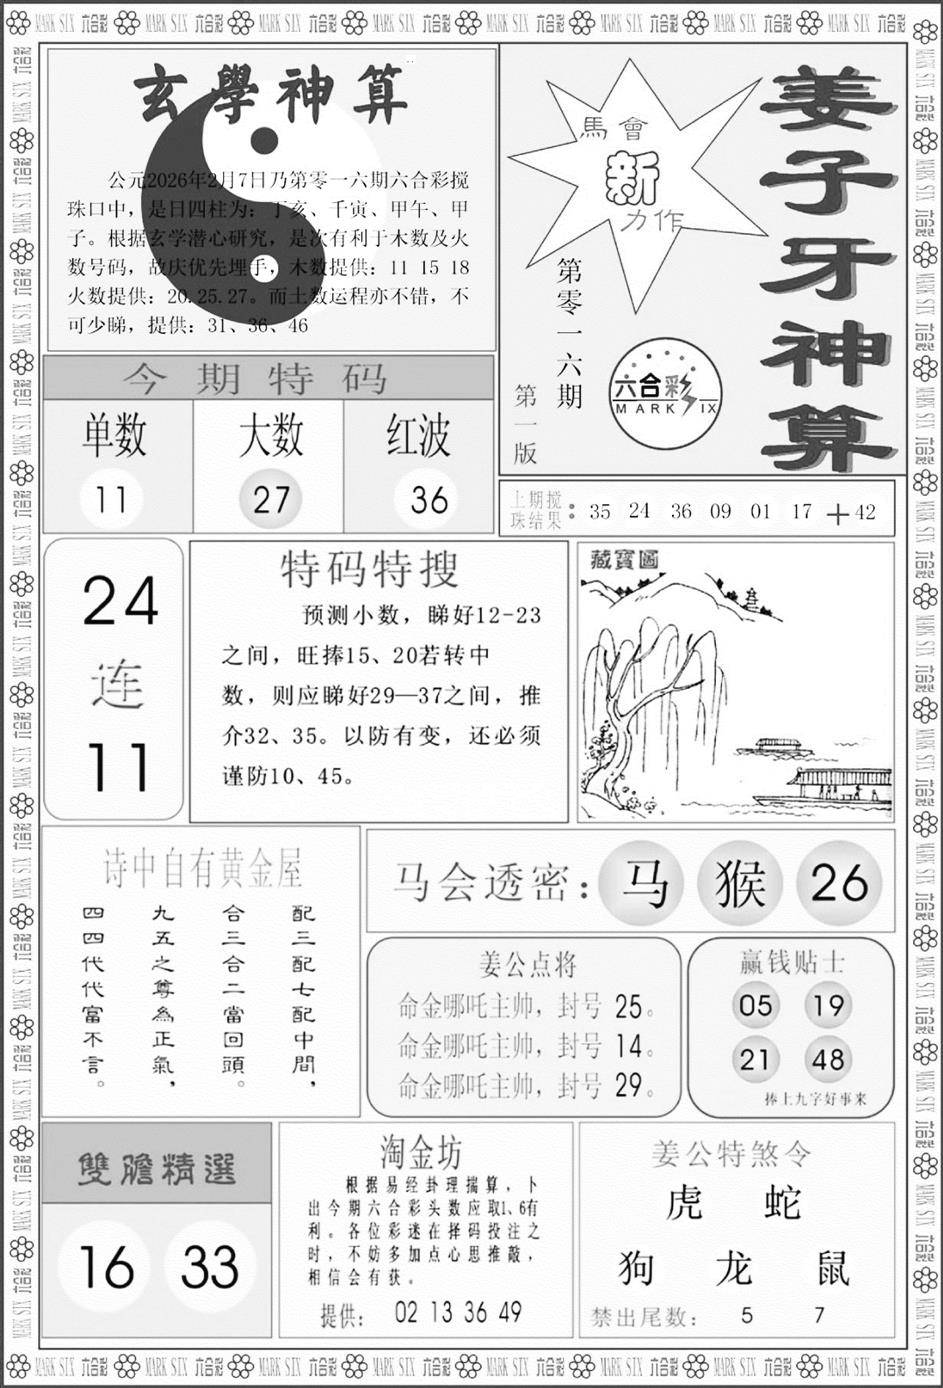 玄學神算
公元2026年2月7日乃第零一六期六合彩搅
珠口中，是日四柱为：丁亥、千寅、甲午、甲
子。根据玄学潜心研究，是次有利于木数及火
数号码，故庆优先埋手，木数提供：11 15 18
火数提供：20.25.27。而土数运程亦不错，不
可少睇，提供：31、36、46
馬會
新
力作
第零一六期
第一版
六合彩
MARK SIX
姜子牙神算
今期特码
单数 大数 红波
11 27 36
上期搅
珠结果：35 24 36 09 01 17 ＋42
24
连
11
特码特搜
预测小数，睇好12-23
之间，旺捧15、20若转中
数，则应睇好29—37之间，推
介32、35。以防有变，还必须
谨防10、45。
藏寶圖
诗中自有黄金屋
配三配七配中間，
合三合二當回頭。
九五之尊為正氣，
四四代代富不言。
马会透密：马 猴 26
姜公点将
命金哪吒主帅，封号 25。
命金哪吒主帅，封号 14。
命金哪吒主帅，封号 29。
赢钱贴士
05 19
21 48
捧上九字好事来
雙膽精選
16 33
淘金坊
根据易经卦理揣算，卜
出今期六合彩头数应取1、6有
利。各位彩迷在择码投注之
时，不妨多加点心思推敲，
相信会有获。
提供： 02 13 36 49
姜公特煞令
虎 蛇
狗 龙 鼠
禁出尾数： 5 7